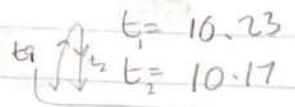 t₁ = 10.23
t₂ t₂ = 10.17